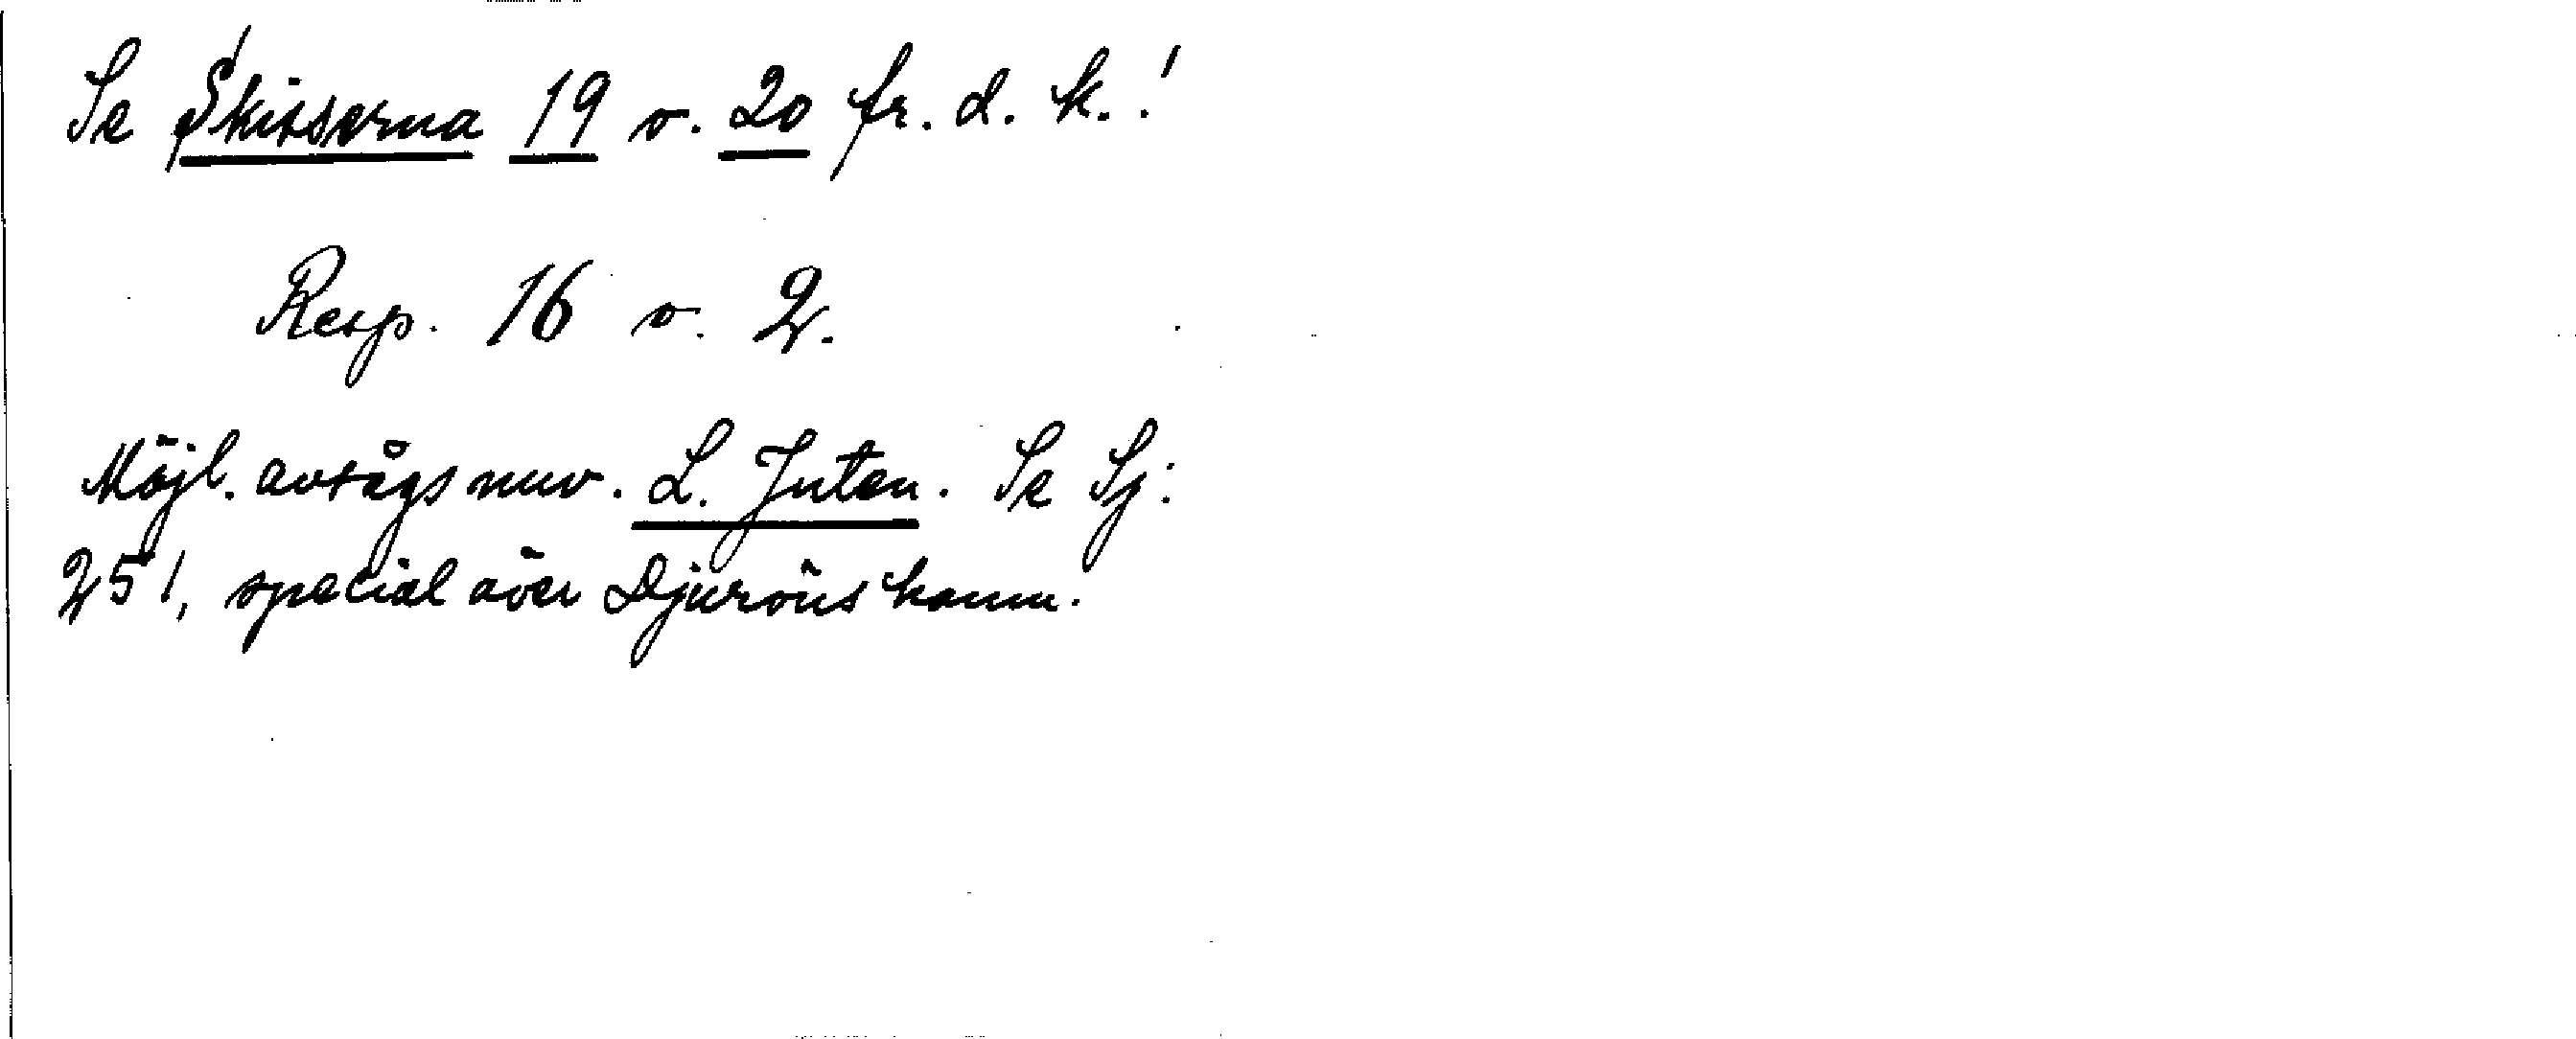 Se Skisserna 19 o. 20 fr. d. k.!
Resp. 16 o. 2.
Möjl. avsågs nuv. L. Juten. Se Sj:
251, special över Djuröns hamn.